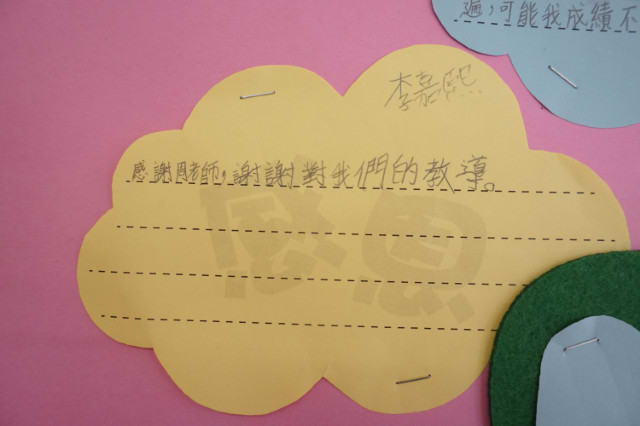 遍，可能我成績不
李嘉熙
感謝周老師，謝謝對我們的教導。
感恩